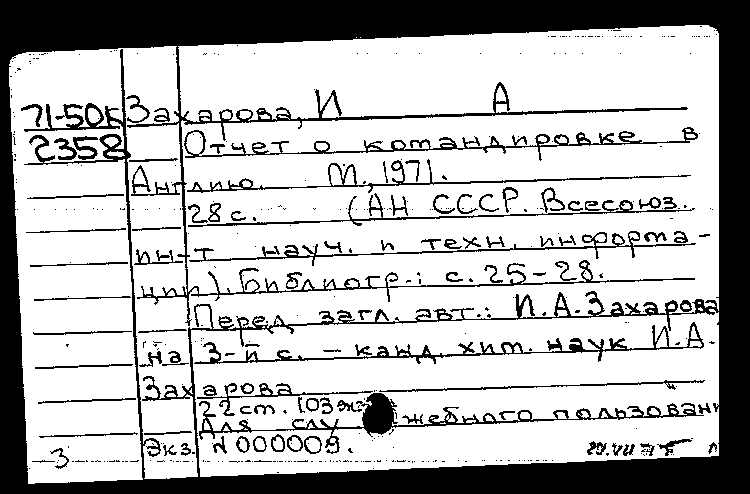 71-50к Захарова, И А
2358 Отчет о командировке в
Англию. М., 1971.
28 с. (АН СССР. Всесоюз.
ин-т науч. и техн. информа-
ции). Библиогр.: с. 25-28.
Перед загл. авт.: И.А.Захарова
на 3-й с. - канд. хим. наук И.А.
Захарова
22 ст. 103 экз
Для слу жебного пользовани
3 Экз. N 000009.